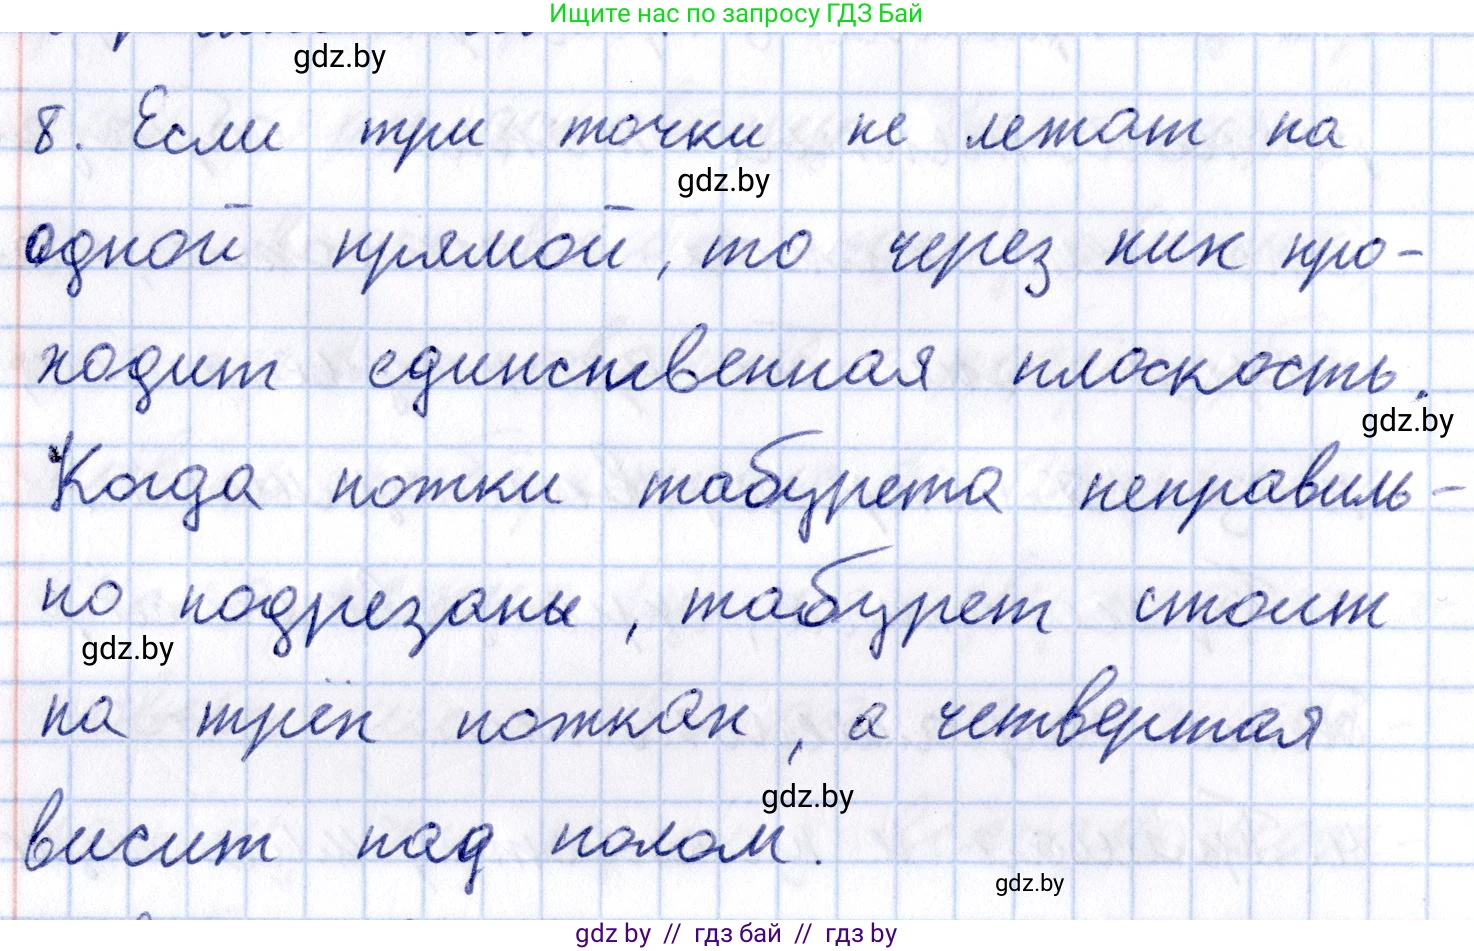 Ищите нас по запросу ГДЗ Бай
gdz.by
8. Если три точки не лежат на
gdz.by
одной прямой, то через них про-
ходит единственная плоскость.
gdz.by
Когда ножки табурета неправиль-
но подрезаны, табурет стоит
gdz.by
на трёх ножках, а четвертая
gdz.by
висит над полом.
gdz.by
gdz by // гдз бай // гдз by